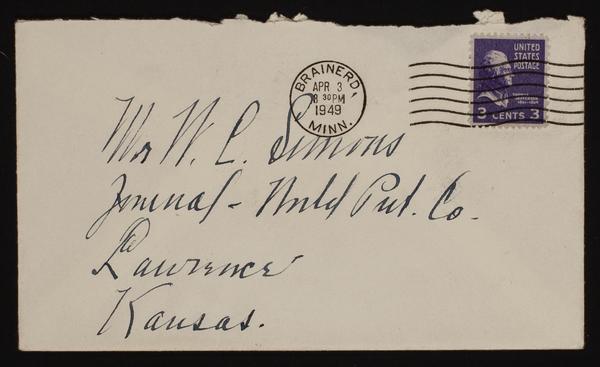 BRAINERD
APR 3
8 30 PM
1949
MINN.
UNITED
STATES
POSTAGE
THOMAS
JEFFERSON
1801-1809
3 CENTS 3
Mr W. C. Simons
Journal - World Pub. Co.
Lawrence
Kansas.